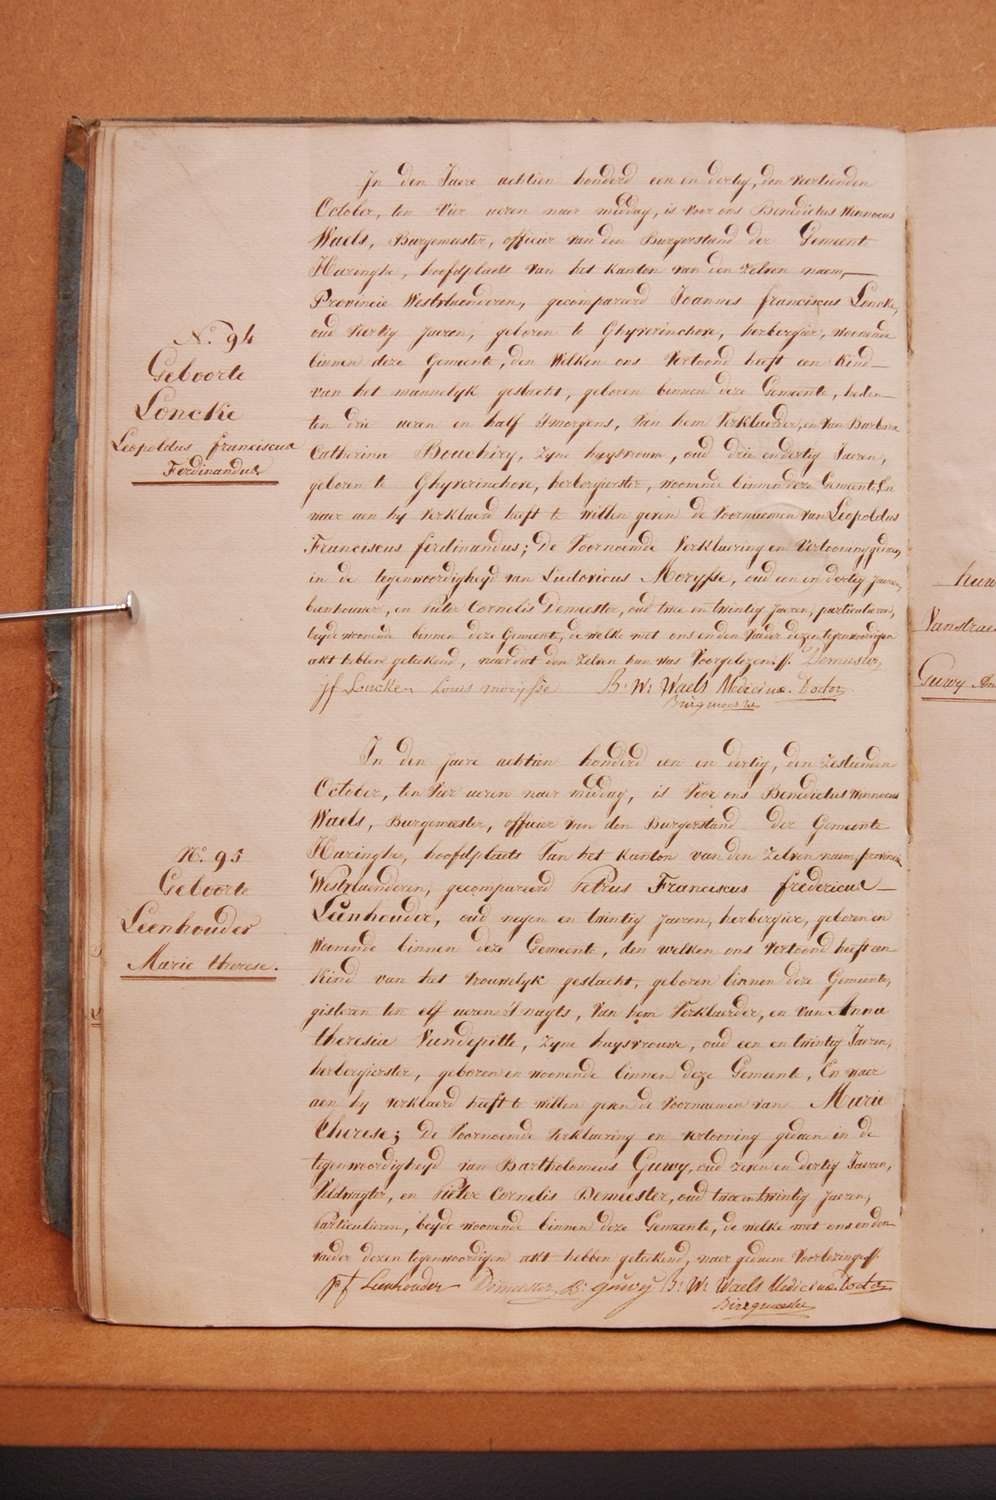 In den Jaere achtien honderd een en dertig, den veertienden
October, ten vier ueren naer middag, is voor ons Benedictus Winnocus
Waels, Burgemeester, officier van den Burgerstand der Gemeente
Haringhe, hoofdplaets van het kanton van den zelven naem,
Provincie Westvlaenderen, gecompareerd Joannes franciscus Loncke,
oud veertig Jaeren, geboren te Ghyverinchove, herbergier, woonende
binnen deze Gemeente, den welken ons vertoond heeft een kind
van het mannelyk geslacht, geboren binnen deze Gemeente, heden
ten drie ueren en half 's morgens, van hem Verklaerder, en van Barbara
Catherina Bouchiry, zyne huysvrouw, oud drie en dertig Jaeren,
geboren te Ghyverinchove, herbergierster, woonende binnen deze Gemeente, En
waer aen hy verklaerd heeft te willen geven de voornaemen van Leopoldus
Franciscus ferdinandus; De Voornoemde Verklaering en vertooning gedaen
in de tegenwoordigheyd van Ludovicus Morysse, oud een en dertig jaeren,
beenhouwer, en Pieter Cornelis Demeester, oud twee en twintig Jaeren, particulieren,
beyde woonende binnen deze Gemeente, de welke met ons en den Vader dezen tegenwoordigen
akt hebben geteekend, naer dat den zelven hun was voorgelezen. Demeester,
jf Loncke Louis morysse B: W: Waels Medicinæ. Doctor
Burgmeester
N.º 94
Geboorte
Loncke
Leopoldus franciscus
Ferdinandus
In den jaere achtien honderd een en dertig, den zestienden
October, ten vier ueren naer middag, is voor ons Benedictus Winnocus
Waels, Burgemeester, officier van den Burgerstand der Gemeente
Haringhe, hoofdplaets van het kanton van den zelven naem, provincie
Westvlaenderen, gecompareerd Petrus Franciscus fredericus
Leenhouder, oud negen en twintig jaeren, herbergier, geboren en
woonende binnen deze Gemeente, den welken ons vertoond heeft een
kind van het vrouwelyk geslacht, geboren binnen deze Gemeente,
gisteren ten elf ueren 's nagts, van hem Verklaerder, en van Anna
theresia Vandepitte, zyne huysvrouwe, oud een en twintig Jaeren,
herbergierster, geboren en woonende binnen deze Gemeente, En waer
aen hy verklaerd heeft te willen geven de voornaemen van Marie
Therese; De Voornoemde Verklaering en vertooning gedaen in de
tegenwoordigheyd van Bartholomeus Guwy, oud zeven en dertig Jaeren,
Veldwagter, en Pieter Cornelis Demeester, oud twee en twintig jaeren,
Particulieren, beyde woonende binnen deze Gemeente, de welke met ons en den
vader dezen tegenwoordigen akt hebben geteekend, naer gedaene Voorlezing.
pf Leenhouder Demeester B: guwy B: W: Waels Medicinæ. Doctor
Burgmeester
Nº. 95
Geboorte
Leenhouder
Marie therese.
huw
Vanstrae
Guwy An